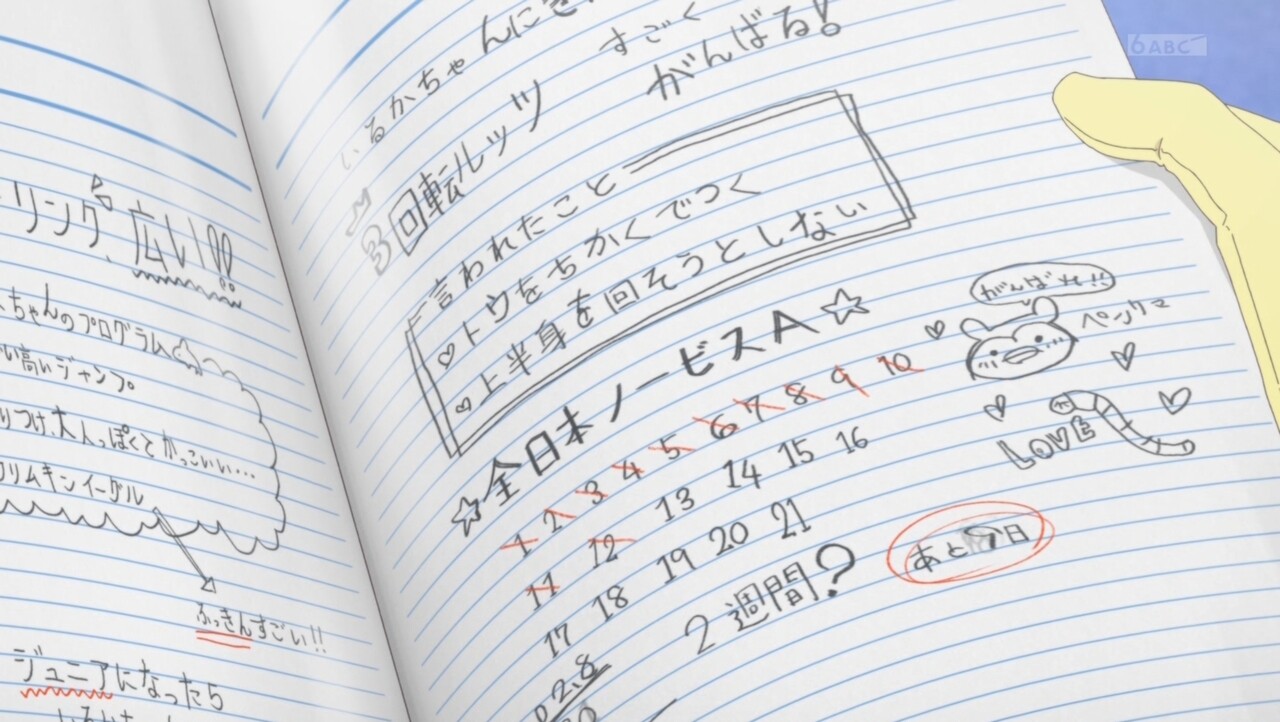 リンク 広い!!
ちゃんのプログラム
い高いジャンプ。
りつけ、大人っぽくてかっこいい…
クリムキンイーグル
ふっきんすごい!!
ジュニアになったら
いるかちゃんに
すごく
がんばる!
3回転ルッツ
言われたこと
♡トウをちかくでつく
♡上半身を回そうとしない
☆全日本ノービスA☆
1 2 3 4 5 6 7 8 9 10
11 12 13 14 15 16
17 18 19 20 21
2週間?
がんばれ!!
ペンクマ
LOVE
あと 日
6 ABC